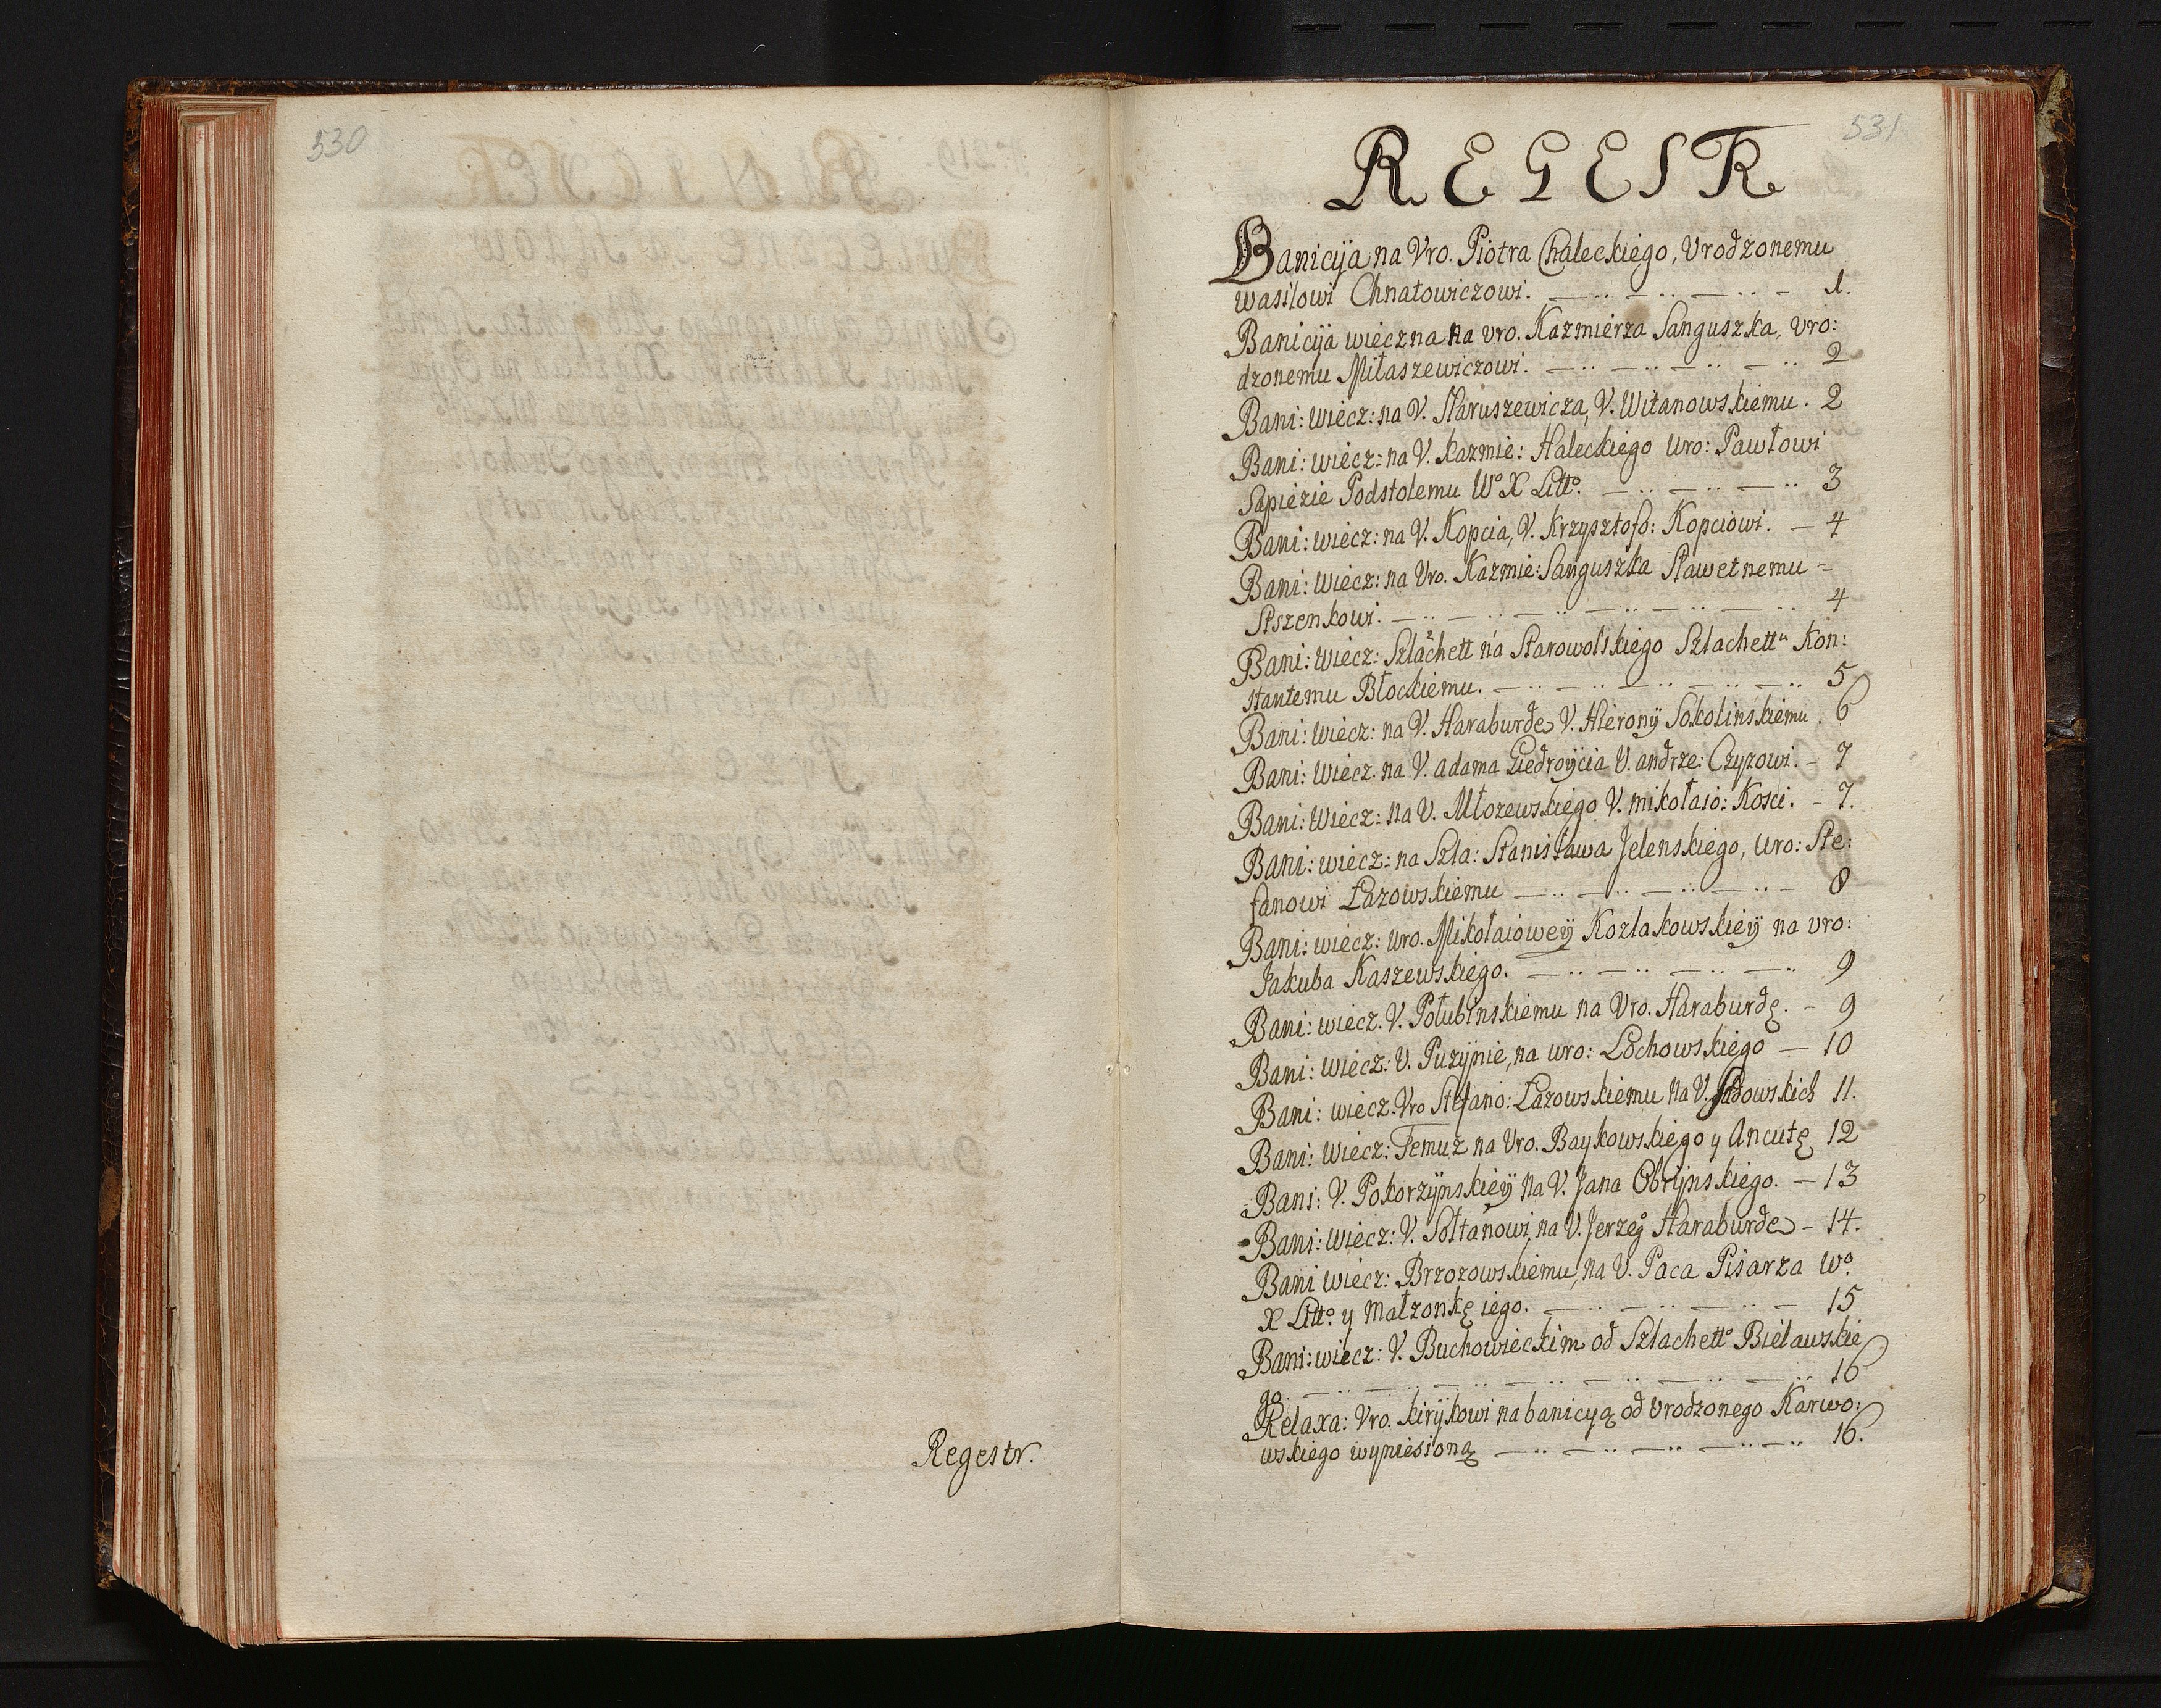 530
Regestr.
531
REGESTR
Banicija na Vro. Piotra Chaleckiego, Vrodzonemu
wasilowi Chnatowiczowi. 1.
Banicija wieczna na vro. Kazmierza Sanguszka, vro:
dzonemu Miłaszewiczowi. 2
Bani: wiecz: na V. Naruszewicza, V. Witanowskiemu. 2
Bani: wiecz: na V. Kazmie: Haleckiego Uro: Pawłowi
Sapiezie Podstolemu Wº X Littº. 3
Bani: wiecz: na V. Kopcia, V. Krzysztofo: Kopciowi. — 4
Bani: wiecz: na Vro. Kazmie: Sanguszka Sławetnemu =
Siszenkowi. 4
Bani: wiecz: Szlachett na Starowolskiego Szlachettu Kon:
stantemu Błockiemu. 5
Bani: wiecz: na V. Haraburde V. Hierony Sokolinskiemu. 6
Bani: wiecz: na V. Adama Giedroycia V. andrze: Czyzowi. - 7
Bani: wiecz: na V. Młozewskiego V. mikołaio: Kosci. - 7.
Bani: wiecz: na Szla: Stanisława Jelenskiego, Uro: Ste:
fanowi Łazowskiemu 8
Bani: wiecz: uro. Mikołaiowey Kozlakowskiey na vro:
Jakuba Kaszewskiego. 9
Bani: wiecz. V. Połubinskiemu na Vro. Haraburdę. - 9
Bani: wiecz: V. Puzynie, na uro: Lochowskiego — 10
Bani: wiecz. Vro Stefano: Łazowskiemu na V. Sadowskich 11.
Bani: wiecz: Temuz na Vro. Baykowskiego y Ancutę 12
Bani: V. Pokorzynskiey na V. Jana Obrynskiego. — 13
Bani: wiecz: V. Sołtanowi, na V. Jerzeº Haraburde - 14.
Bani wiecz: Brzozowskiemu, na V. Paca Pisarza Wº
X Littº y Małzonkę iego. 15
Bani: wiecz: V. Buchowieckim od Szlachettº Bielawskie
go. 16
Relaxa: Vro. kirykowi na banicyą od Vrodzonego Karwo:
wskiego wyniesioną 16.